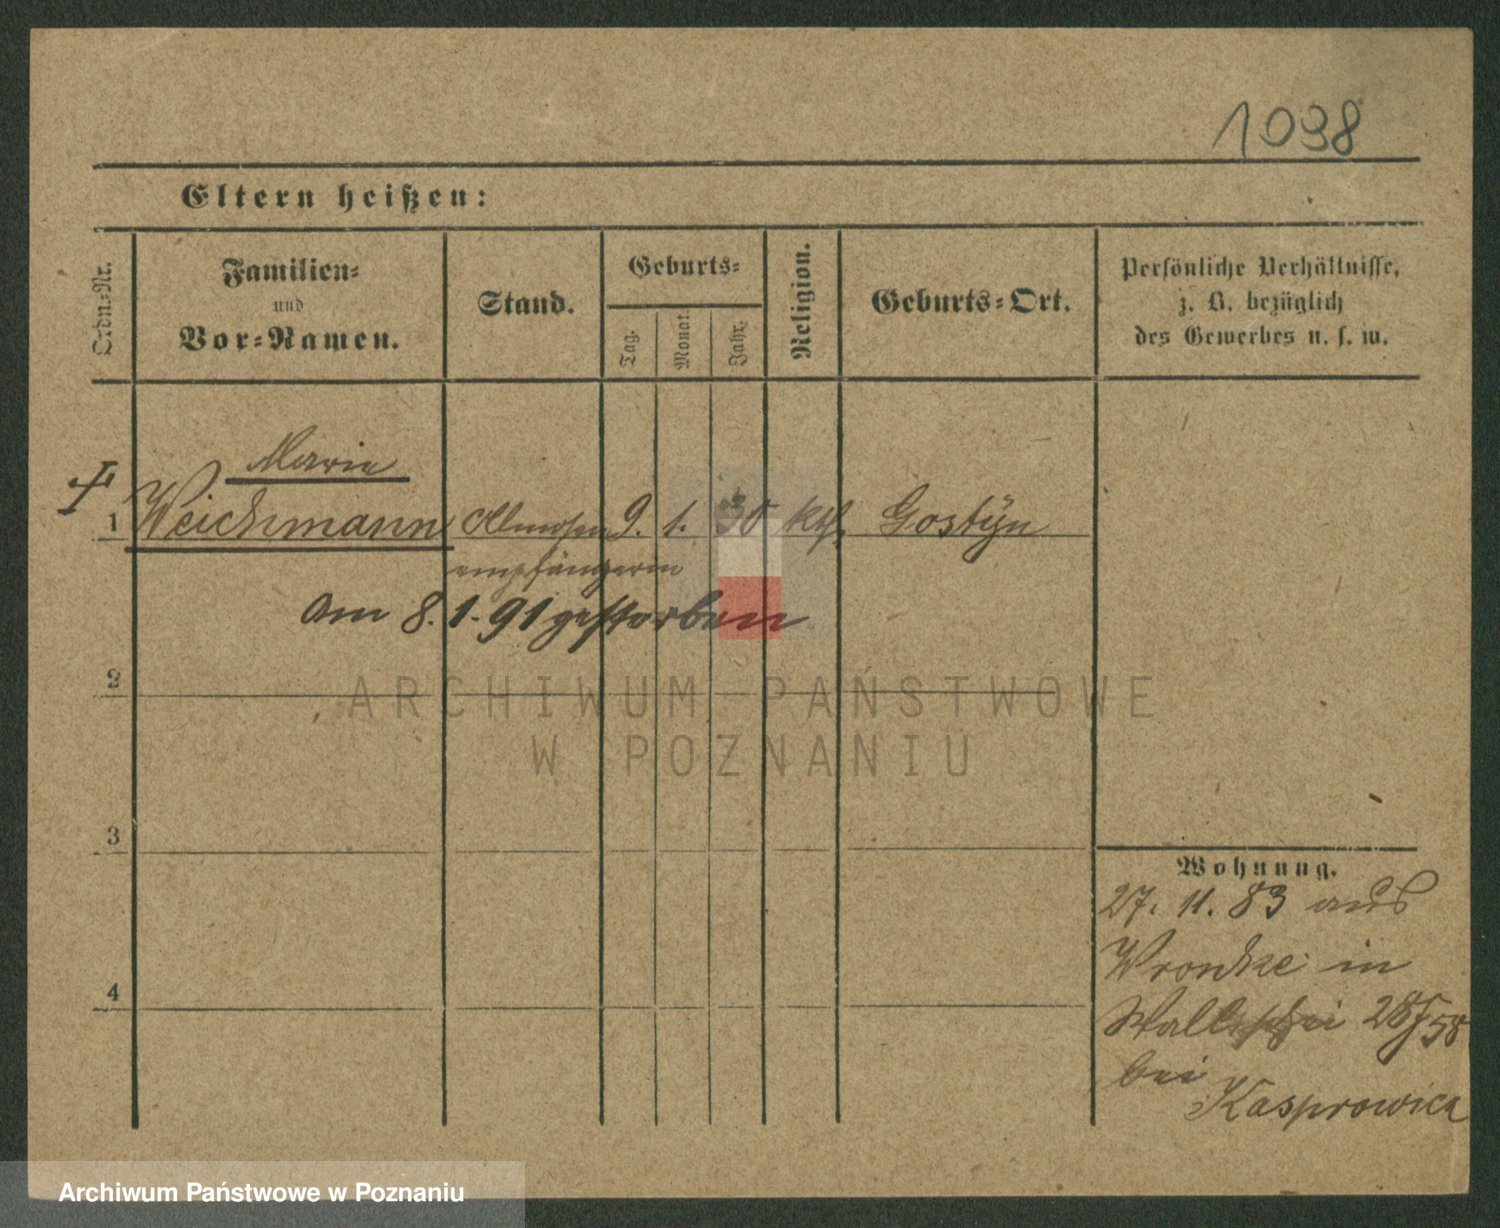 1038
Eltern heißen:
Ordn.-Nr.
Familien-
und
Vor-Namen.
Stand.
Geburts-
Tag.
Monat.
Jahr.
Religion.
Geburts-Ort.
Persönliche Verhältnisse,
z. B. bezüglich
des Gewerbes u. s. w.
Marie
1 Weichmann Almosen 9. 1. 30 kth. Gostÿn
empfängerin
am 8. 1. 91 gestorben
2
3
4
Wohnung.
27. 11. 83 aus
Wronke in
Wallischei 28/58
bei
Kasprowicz
ARCHIWUM PAŃSTWOWE
W POZNANIU
Archiwum Państwowe w Poznaniu